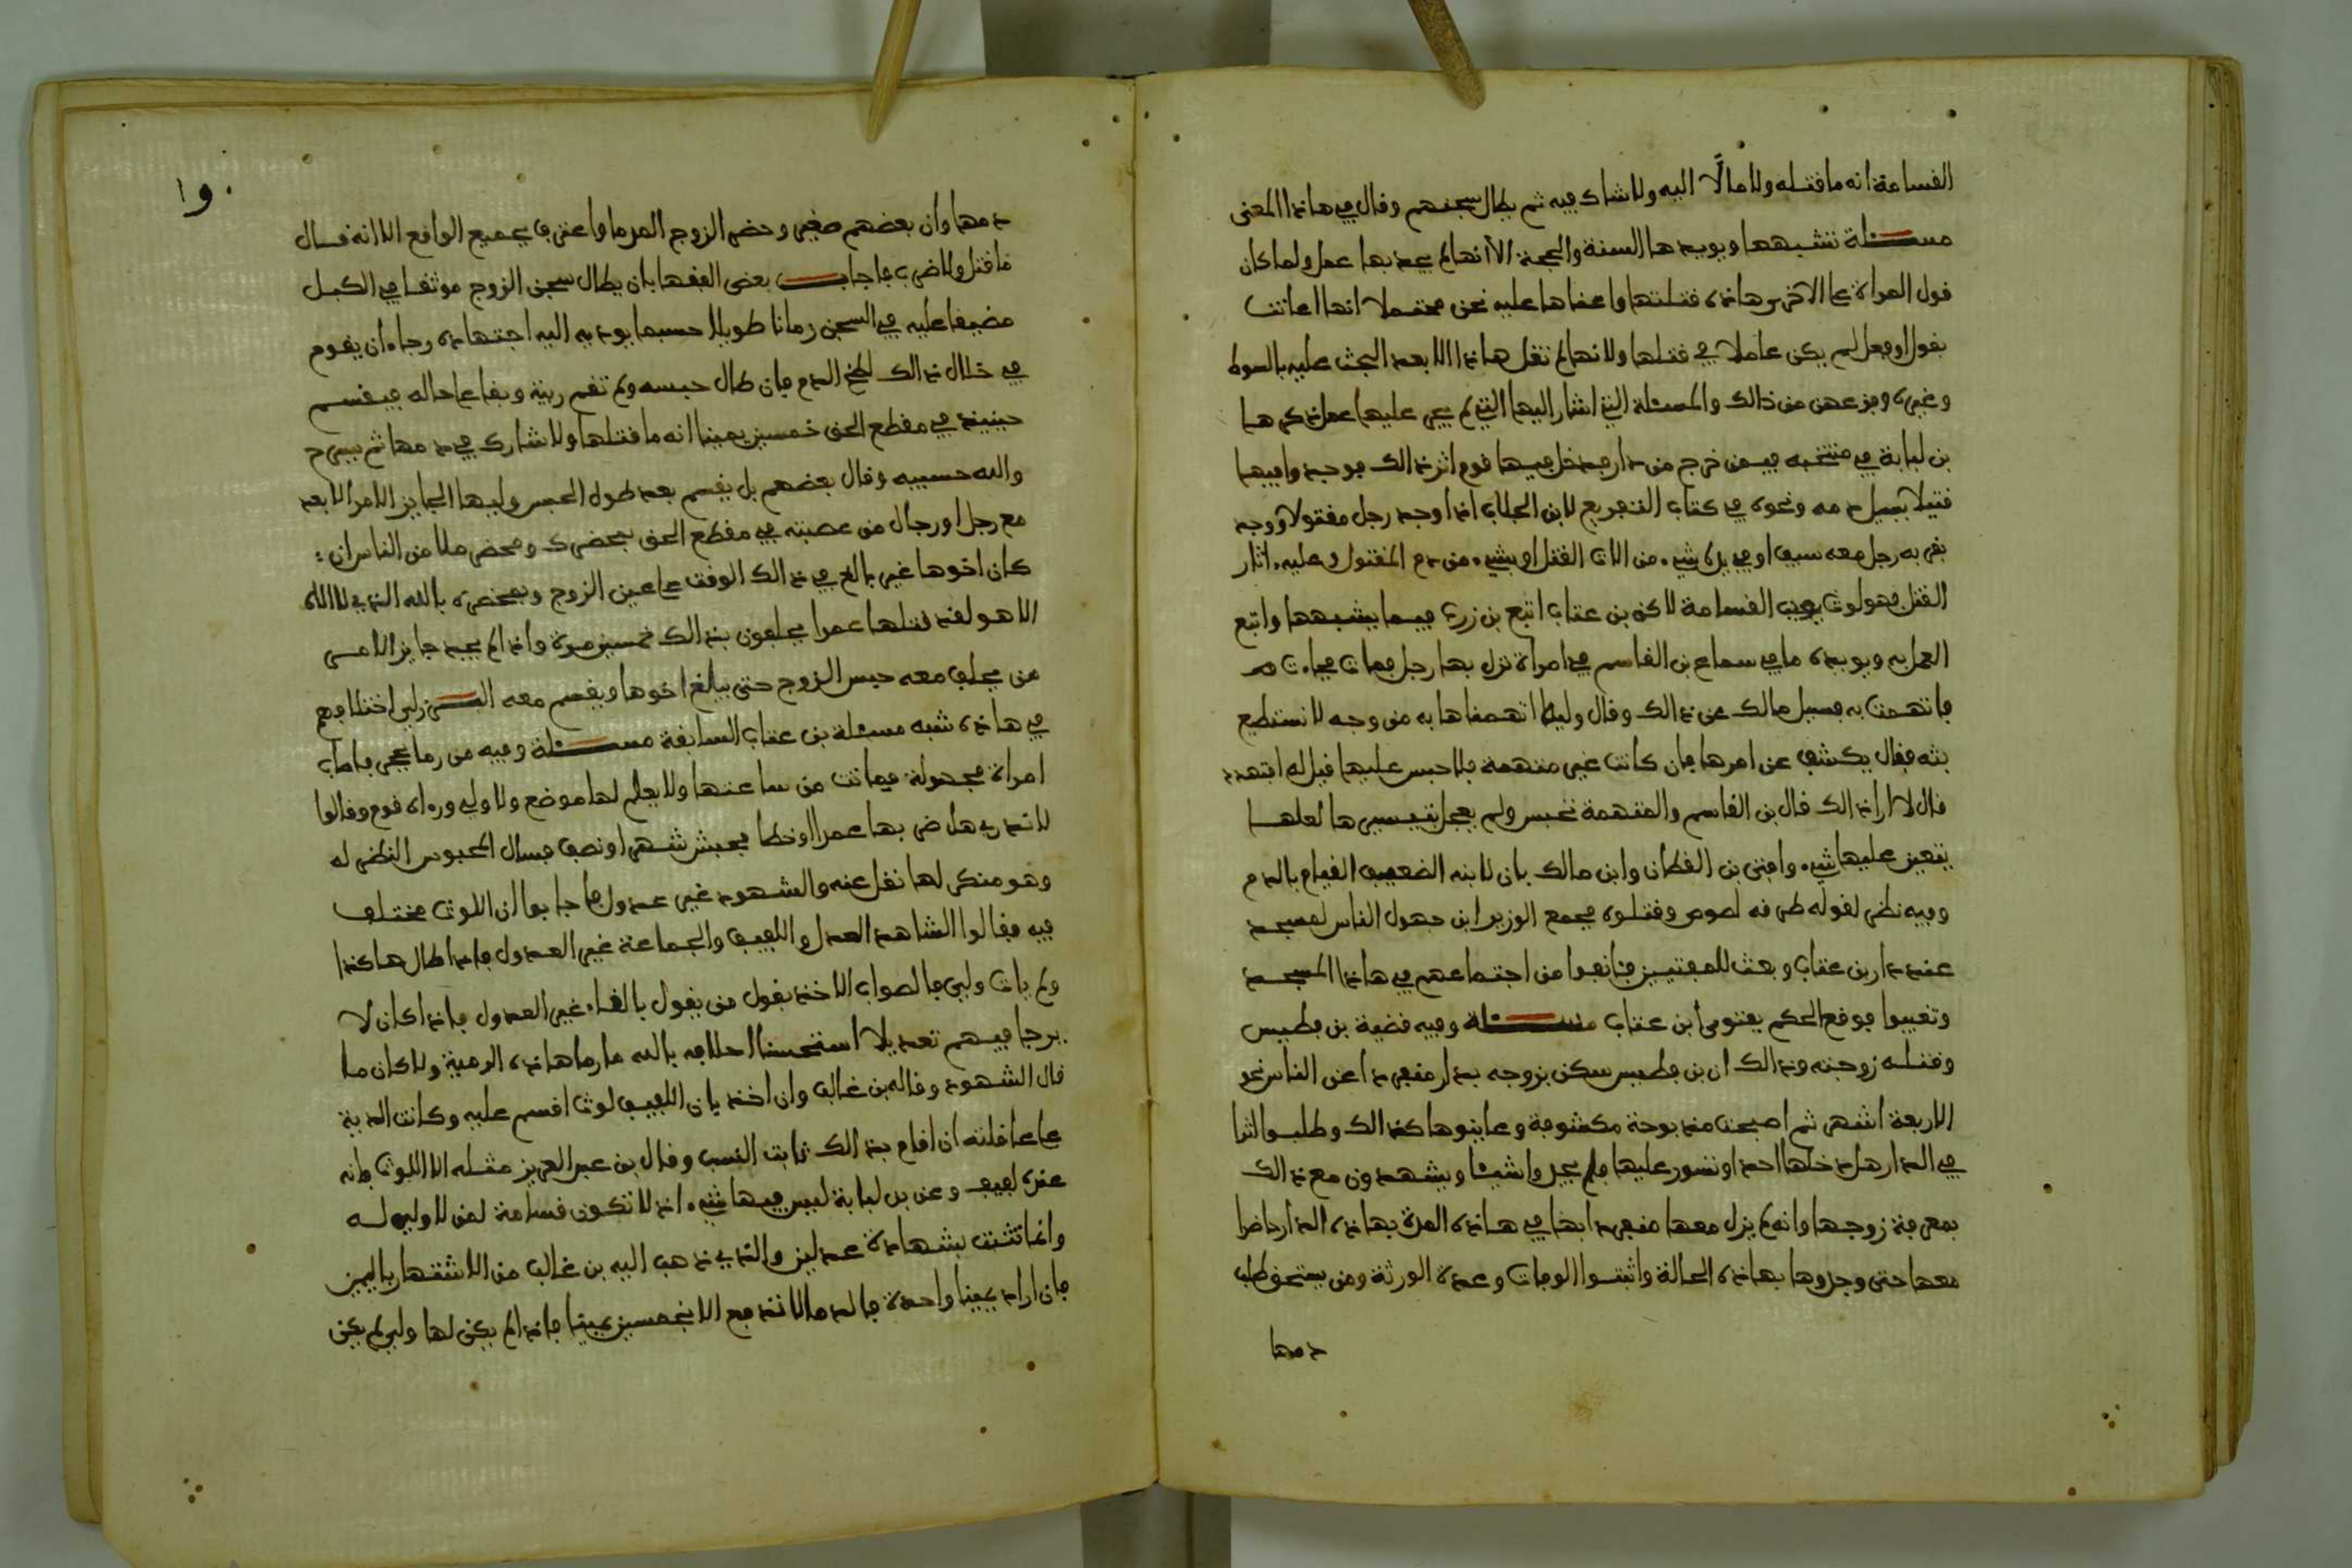 القسامة انه ما قتله ولا مالًا اليه ولا شارك فيه ثم يطال سجنهم وقال في هاذا المعنى
مسئلة تشبهها ويويدها السنة والحجة الا انها لم يجد بها عمل ولما كان
قول المراة على الاخرى هاذه قتلتها واعفاها عليه نحن محتملا انها اعانت
بقول او فعل لم يكن عاملا في قتلها ولانها لم تقل هاذا الا بعد البحث عليه بالسوط
وغيره وفزعهن من ذالك والمسئلة التي اشار اليها التي لم يجر عليها عمل ذكرها
بن لبابة في منتخبه فيمن خرج من دار فدخل فيها قوم اثر ذالك فوجدوا فيها
قتيلا يسيل دمه ونحوه في كتاب التفريع لابن الجلاب اذا وجد رجل مقتولا ووجد
بقربه رجل معه سيف او في يده شيء من الات القتل او شيء من دم المقتول وعليه اثار
القتل فهو لوث يوجب القسامة لاكن بن عتاب اتبع بن زرب فيما يشبهها واتبع
العمل به ويويده ما في سماع بن القاسم في امراة نزل بها رجل فمات فجاءت
فاتهمت به فسيل مالك عن ذالك وقال وليه اتهمناها به من وجه لا نستطيع
بثه فقال يكشف عن امرها فان كانت غير متهمة فلا حبس عليها قيل له افتهدد
قال لا ارا ذالك قال بن القاسم والمتهمة تحبس ولم يعجل تسريحها لعلها
يتعين عليها شيء وافتى بن القطان وابن مالك بان لابنه الضعيف القيام بالدم
وفيه نظر لقوله طرقه لصوص وقتلوه فجمع الوزير ابن جهول الناس لمسجد
عند دار بن عتاب وبعث للمفتيين فانفوا من اجتماعهم في هاذا المسجد
وتغيبوا فوقع الحكم بفتوى ابن عتاب مسئلة وفيه قضية بن فطيس
وقتله زوجته وذالك ان بن فطيس سكن بزوجه بدار منفردا عن الناس نحو
الاربعة اشهر ثم اصبحت مذبوحة مكشوفة وعاينوها كذالك وطلبوا اثرا
في الدار هل دخلها احد او تسور عليها فلم يجدوا شيئا ويشهدون مع ذالك
بمعرفة زوجها وانه لم يزل معها منفردا بها في هاذه المدة بهاذه الدار حاضرا
معها حتى وجدوها بهاذه الحالة واثبتوا الوفات وعدة الورثة ومن يستحق طلب
دمها
١٥٠
دمها وان بعضهم صغير وحضر الزوج المرما واعترف بجميع الواقع الا انه قال
ما قتل ولا ضرب فاجاب بعض الفقها بان يطال سجن الزوج موثقا في الكبل
مضيقا عليه في السجن زمانا طويلا حسبما يوديه اليه اجتهاده رجاء ان يقوم
في خلال ذالك لطخ الدم فان طال حبسه ولم تقم ريبة وبقا على حاله فيقسم
حينيذ في مقطع الحق خمسين يمينا انه ما قتلها ولا شارك في دمها ثم يسرح
والله حسيبه وقال بعضهم بل يقسم بعد طول الحبس وليها الجايز الامر الا بعد
مع رجل او رجال من عصبته في مقطع الحق بمحضرك ومحضر ملا من الناس ان
كان اخوها غير بالغ في ذالك الوقت على عين الزوج وبمحضره بالله الذي لا اله
الا هو لقد قتلها عمدا يحلفون بذالك خمسين مرة واذا لم يجد جايز الامر
من يحلف معه حبس الزوج حتى يبلغ اخوها ويقسم معه اختلافهم
في هاذه شبه مسئلة بن عتاب السابقة مسئلة وفيه من رما بحجر فاصاب
امراة مجهولة فماتت من ساعتها ولا يعلم لها موضع ولا ولي ورءاه قوم وقالوا
لا ندري هل ضربها عمدا او خطا فحبس شهرا ونصف فسال المحبوس النظر له
وهو منكر لها نقل عنه والشهود غير عدول فاجابوا ان اللوث مختلف
فيه فقالوا الشاهد العدل واللفيف والجماعة غير العدول فاذا طال هاكذا
ولم يات ولي فالصواب الاخذ بقول من يقول بالغاء غير العدول فاذا كان لا
يرجا فيهم تعديلا استحسنا احلافه بالله ما رما هاذه الرمية ولا كان ما
قال الشهود وقاله بن غالب وان اخذ بان اللفيف لوث اقسم عليه وكانت الدية
على عاقلته ان اقام بذالك ثابت النسب وقال بن عبد العزيز مثله الا اللوث فانه
عنده لفيف وعن بن لبابة ليس فيها شيء اذ لا تكون قسامة لمن لا ولي له
وانما تثبت بشهادة عدلين والذي ذهب اليه بن غالب من الاستظهار باليمين
فان اراد يمينا واحدة فالدما لا تندفع الا بخمسين يمينا فاذا لم يكن لها ولي لم يكن